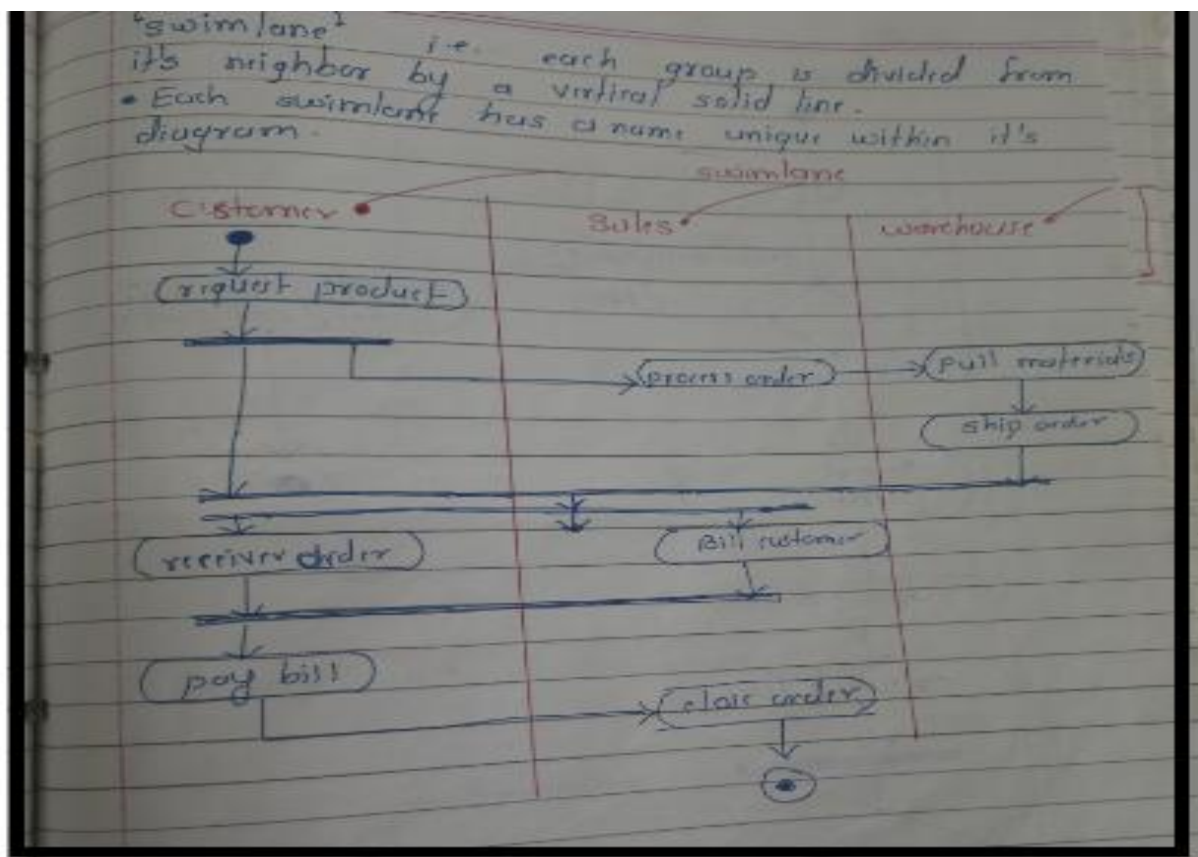 "swimlane" i.e. each group is divided from
it's neighbor by a vertical solid line.
• Each swimlane has a name unique within it's
diagram.
swimlane
Customer
Sales
warehouse
request product
process order
pull materials
ship order
receiver order
Bill customer
pay bill
close order